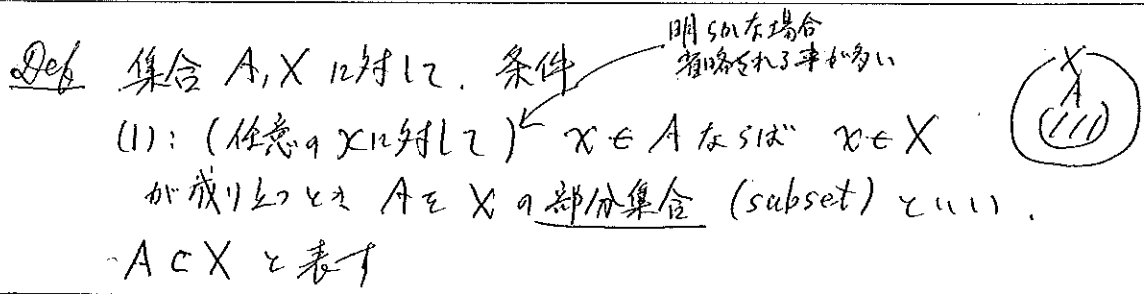 Def 集合 A, X に対して、条件
明らかな場合
省略される事が多い
(1): (任意の x に対して) x ∈ A ならば x ∈ X
が成り立つとき A を X の部分集合 (subset) といい、
A ⊂ X と表す
X
A